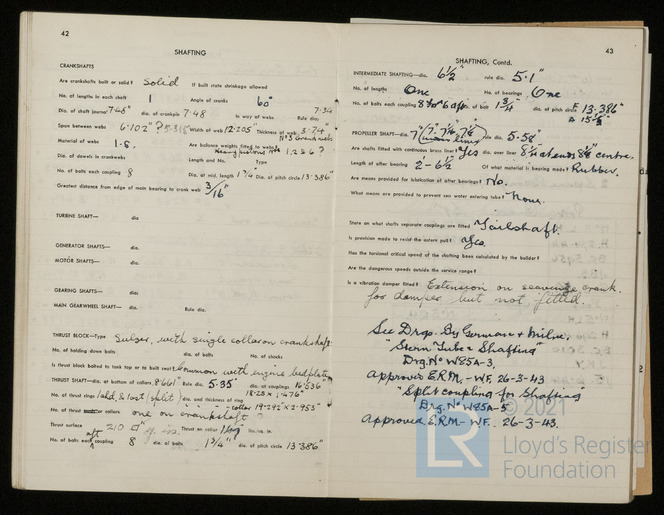 42
SHAFTING
CRANKSHAFTS
Are crankshafts built or solid? Solid If built state shrinkage allowed
No. of lengths in each shaft 1 Angle of cranks 60°
Dia. of shaft journal 7·48" dia. of crankpin 7·48 in way of webs 7·34 Rule dia.
Span between webs 6·102 Width of web 12·205" Thickness of web 3·74
Material of webs Are balance weights fitted to webs? 1,2 & 6?
Dia. of dowels in crankwebs Length and No. Type
No. of bolts each coupling 8 Dia. at mid. length 1¾" Dia. of pitch circle 13·386"
Greatest distance from edge of main bearing to crank web 3/16"
TURBINE SHAFT— dia.
GENERATOR SHAFTS— dia.
MOTOR SHAFTS— dia.
GEARING SHAFTS— dia:
MAIN GEARWHEEL SHAFT— dia. Rule dia.
THRUST BLOCK—Type Sulzer, with single collar on crankshaft
No. of holding down bolts dia. of bolts No. of shocks
Is thrust block bolted to tank top or to built seat? Common with engine bedplate
THRUST SHAFT—dia. at bottom of collars 8·661" Rule dia. 5·35 dia. at couplings
No. of thrust rings 1 ahd & 1 ast (split) dia. and thickness of ring
No. of thrust collars one on crankshaft collar
Thrust surface 210 Thrust on collar lbs./sq. in.
No. of bolts each aft coupling 8 dia. of bolts 1¾" dia. of pitch circle 13·386"
43
SHAFTING, Contd.
INTERMEDIATE SHAFTING—dia. 6½" rule dia. 5·1"
No. of lengths One No. of bearings One
No. of bolts each coupling 8 for'd 6 aft dia. of bolt 1¾" dia. of pitch circle 13·386"
PROPELLER SHAFT—dia. 7" rule dia. 5·58"
Are shafts fitted with continuous brass liner? Yes dia. over liner
Length of after bearing 2'-6½" Of what material is bearing made? Rubber.
Are means provided for lubrication of after bearings? No.
What means are provided to prevent sea water entering tube? None.
State on what shafts separate couplings are fitted Tailshaft.
Is provision made to resist the astern pull? Yes.
Has the torsional critical speed of the shafting been calculated by the builder?
Are the dangerous speeds outside the service range?
Is a vibration damper fitted? Extension on scavenge crank.
for damper but not fitted.
See Drgs. By German & Milne.
"Stern Tube & Shafting"
Drg. No W25A-3,
Approved E.R.M.-W.F. 26-3-43
"Split coupling for Shafting
Drg. No W25A-5
Approved E.R.M-W.F. 26-3-43.
© 2021
LR
Lloyd's Register
Foundation